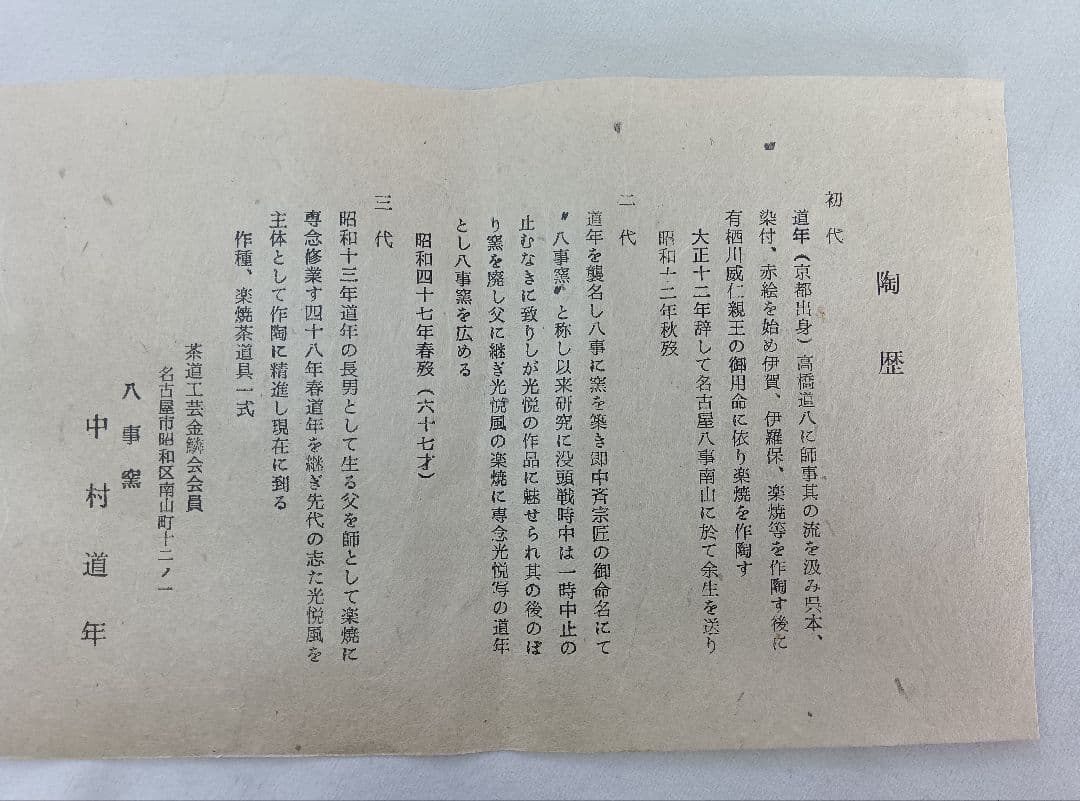 陶歴
初代
道年（京都出身）高橋道八に師事其の流を汲み呉本、
染付、赤絵を始め伊賀、伊羅保、楽焼等を作陶す後に
有栖川威仁親王の御用命に依り楽焼を作陶す
大正十二年辞して名古屋八事南山に於て余生を送り
昭和十二年秋歿
二代
道年を襲名し八事に窯を築き即中斉宗匠の御命名にて
〝八事窯〟と称し以来研究に没頭戦時中は一時中止の
止むなきに致りしが光悦の作品に魅せられ其の後のぼ
り窯を廃し父に継ぎ光悦風の楽焼に専念光悦写の道年
とし八事窯を広める
昭和四十七年春歿（六十七才）
三代
昭和十三年道年の長男として生る父を師として楽焼に
専念修業す四十八年春道年を継ぎ先代の志た光悦風を
主体として作陶に精進し現在に到る
作種、楽焼茶道具一式
茶道工芸金鱗会会員
名古屋市昭和区南山町十二ノ一
八事窯
中村道年